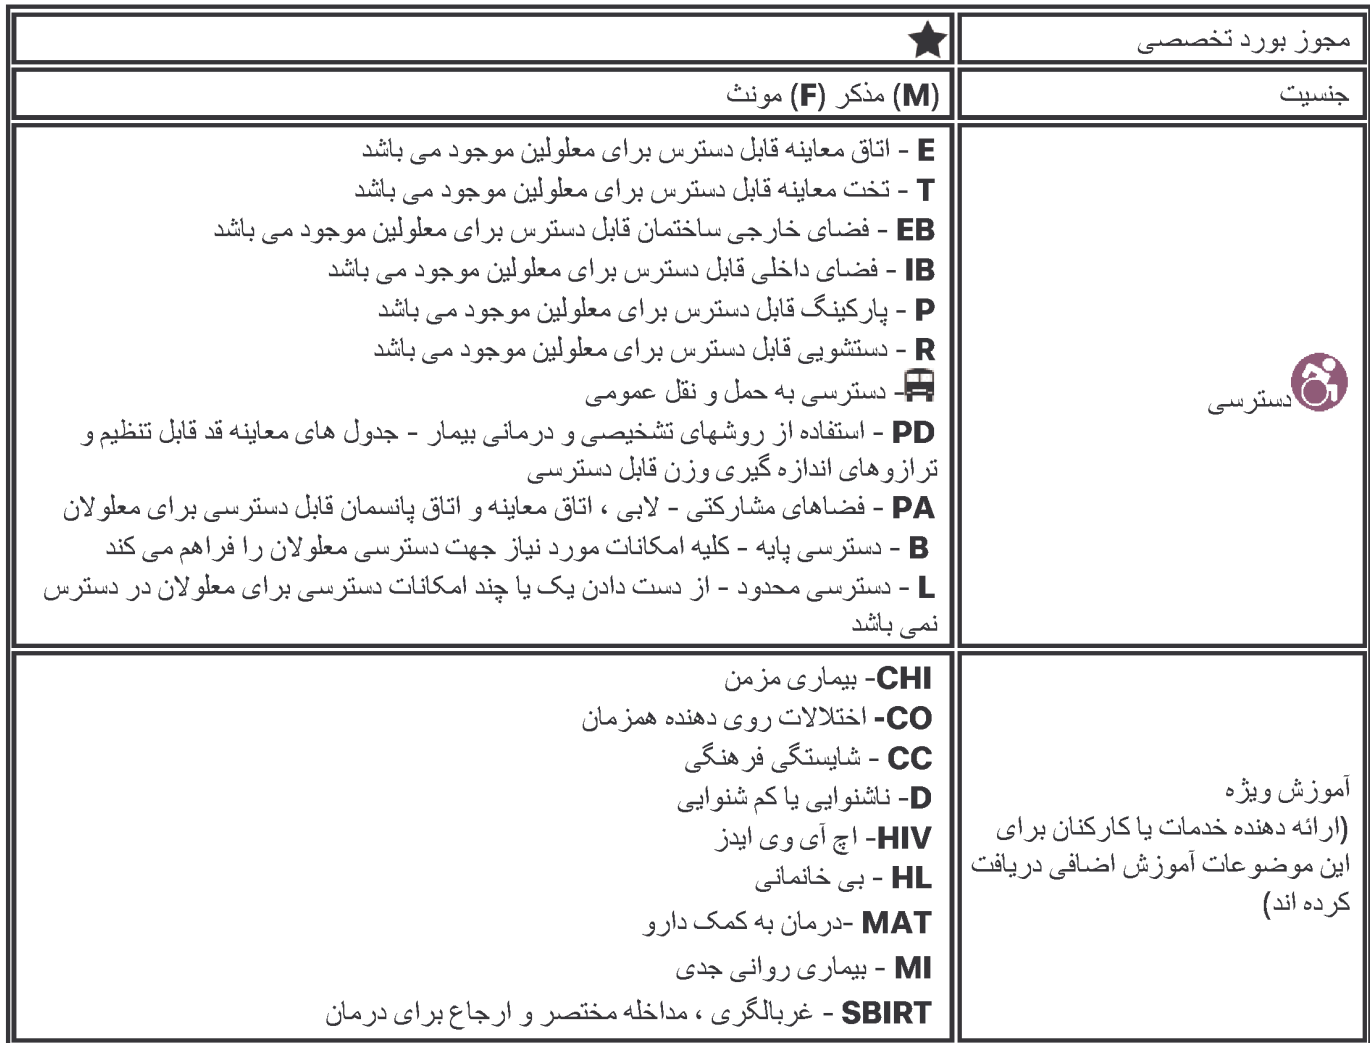 مجوز بورد تخصصی
★
جنسیت
(M) مذکر (F) مونث
دسترسی
E - اتاق معاینه قابل دسترس برای معلولین موجود می باشد
T - تخت معاینه قابل دسترس برای معلولین موجود می باشد
EB - فضای خارجی ساختمان قابل دسترس برای معلولین موجود می باشد
IB - فضای داخلی قابل دسترس برای معلولین موجود می باشد
P - پارکینگ قابل دسترس برای معلولین موجود می باشد
R - دستشویی قابل دسترس برای معلولین موجود می باشد
- دسترسی به حمل و نقل عمومی
PD - استفاده از روشهای تشخیصی و درمانی بیمار - جدول های معاینه قد قابل تنظیم و
ترازوهای اندازه گیری وزن قابل دسترسی
PA - فضاهای مشارکتی - لابی ، اتاق معاینه و اتاق پانسمان قابل دسترسی برای معلولان
B - دسترسی پایه - کلیه امکانات مورد نیاز جهت دسترسی معلولان را فراهم می کند
L - دسترسی محدود - از دست دادن یک یا چند امکانات دسترسی برای معلولان در دسترس
نمی باشد
آموزش ویژه
(ارائه دهنده خدمات یا کارکنان برای
این موضوعات آموزش اضافی دریافت
کرده اند)
CHI- بیماری مزمن
CO- اختلالات روی دهنده همزمان
CC - شایستگی فرهنگی
D- ناشنوایی یا کم شنوایی
HIV- اچ آی وی ایدز
HL - بی خانمانی
MAT -درمان به کمک دارو
MI - بیماری روانی جدی
SBIRT - غربالگری ، مداخله مختصر و ارجاع برای درمان